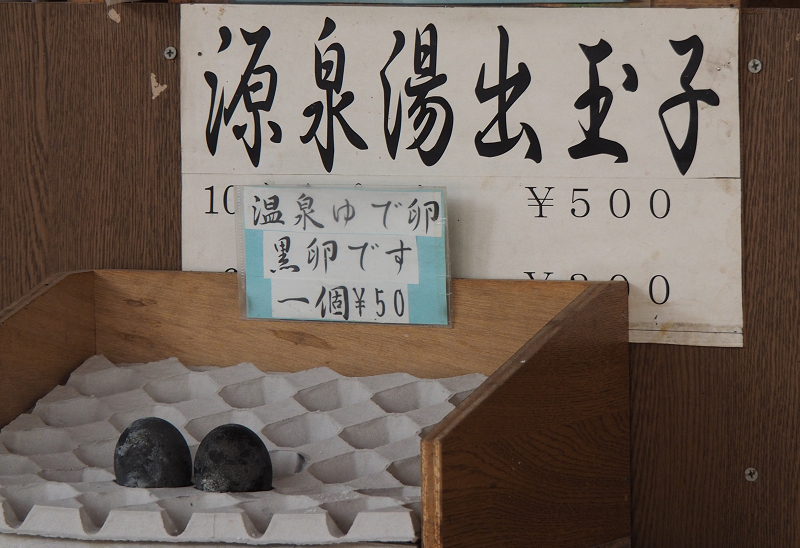 源泉湯出玉子
10 ¥500
温泉ゆで卵
黒卵です
一個¥50